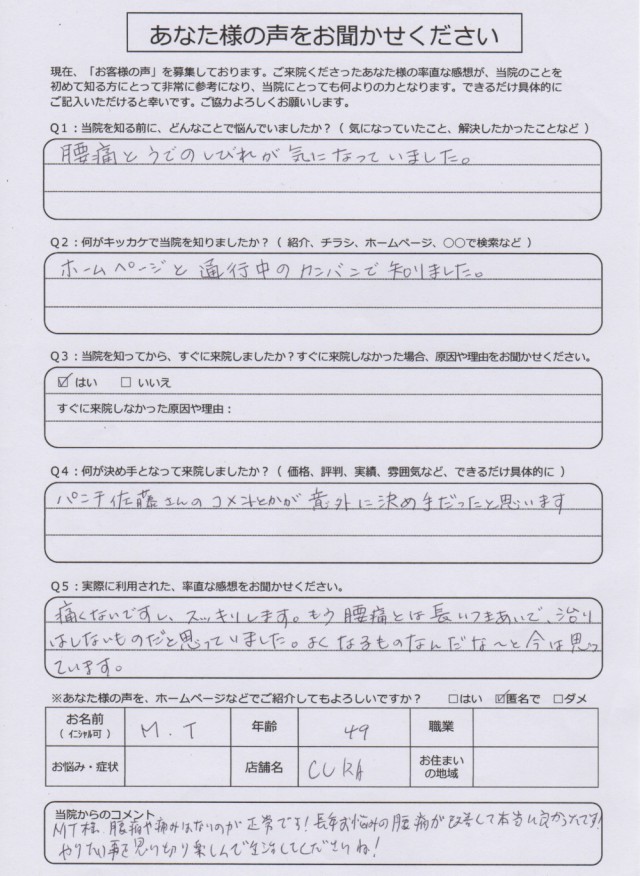 あなた様の声をお聞かせください
現在、「お客様の声」を募集しております。ご来院くださったあなた様の率直な感想が、当院のことを
初めて知る方にとって非常に参考になり、当院にとっても何よりの力となります。できるだけ具体的に
ご記入いただけると幸いです。ご協力よろしくお願いします。
Q1：当院を知る前に、どんなことで悩んでいましたか？（ 気になっていたこと、解決したかったことなど ）
腰痛とうでのしびれが気になっていました。
Q2：何がキッカケで当院を知りましたか？（ 紹介、チラシ、ホームページ、〇〇で検索など ）
ホームページと通行中のカンバンで知りました。
Q3：当院を知ってから、すぐに来院しましたか？すぐに来院しなかった場合、原因や理由をお聞かせください。
☑ はい □ いいえ
すぐに来院しなかった原因や理由：
Q4：何が決め手となって来院しましたか？（ 価格、評判、実績、雰囲気など、できるだけ具体的に ）
パンチ佐藤さんのコメントとかが意外に決め手だったと思います
Q5：実際に利用された、率直な感想をお聞かせください。
痛くないですし、スッキリします。もう腰痛とは長いつきあいで、治り
はしないものだと思っていました。よくなるものなんだな〜と今は思っ
ています。
※あなた様の声を、ホームページなどでご紹介してもよろしいですか？ □はい ☑匿名で □ダメ
お名前 M.T 年齢 49 職業
（ｲﾆｼｬﾙ可）
お悩み・症状 店舗名 CURA お住まい
の地域
当院からのコメント
MT様、腰痛や痛みはないのが正常です！長年お悩みの腰痛が改善して本当に良かったです！
やりたい事を思い切り楽しんで生活してくださいね！